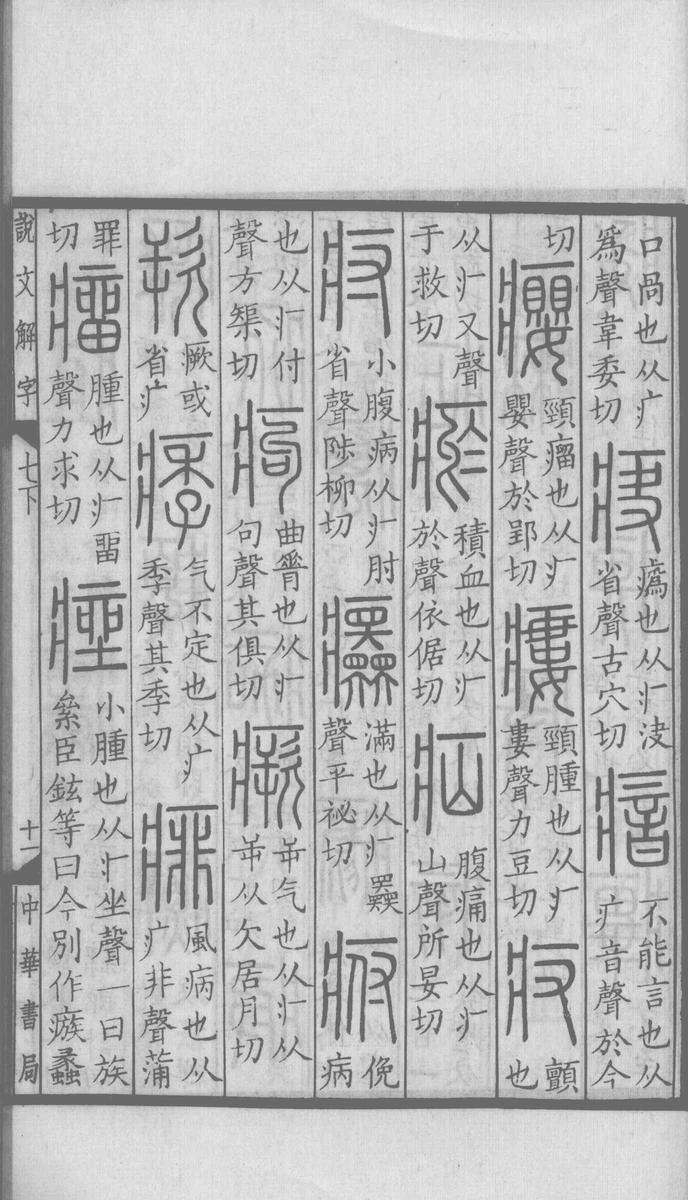 口咼也从疒爲聲韋委切 疦 也从疒決省聲古穴切 瘖 不能言也从疒音聲於今
切 癭 頸瘤也从疒嬰聲於郢切 瘻 頸腫也从疒婁聲力豆切 㽱 顫也
从疒又聲于救切 瘀 積血也从疒於聲依倨切 疝 腹痛也从疒山聲所晏切
疛 小腹病从疒肘省聲陟柳切 滿也从疒㒪聲平祕切 㾈 俛病
也从疒付聲方榘切 痀 曲脊也从疒句聲其俱切 瘚 屰气也从疒从屰从欠居月切
欮 瘚或省疒 痵 气不定也从疒季聲其季切 痱 風病也从疒非聲蒲
罪切 瘤 腫也从疒畱聲力求切 痤 小腫也从疒坐聲一曰族絫臣鉉等曰今別作瘯蠡
說文解字 七下 十一 中華書局